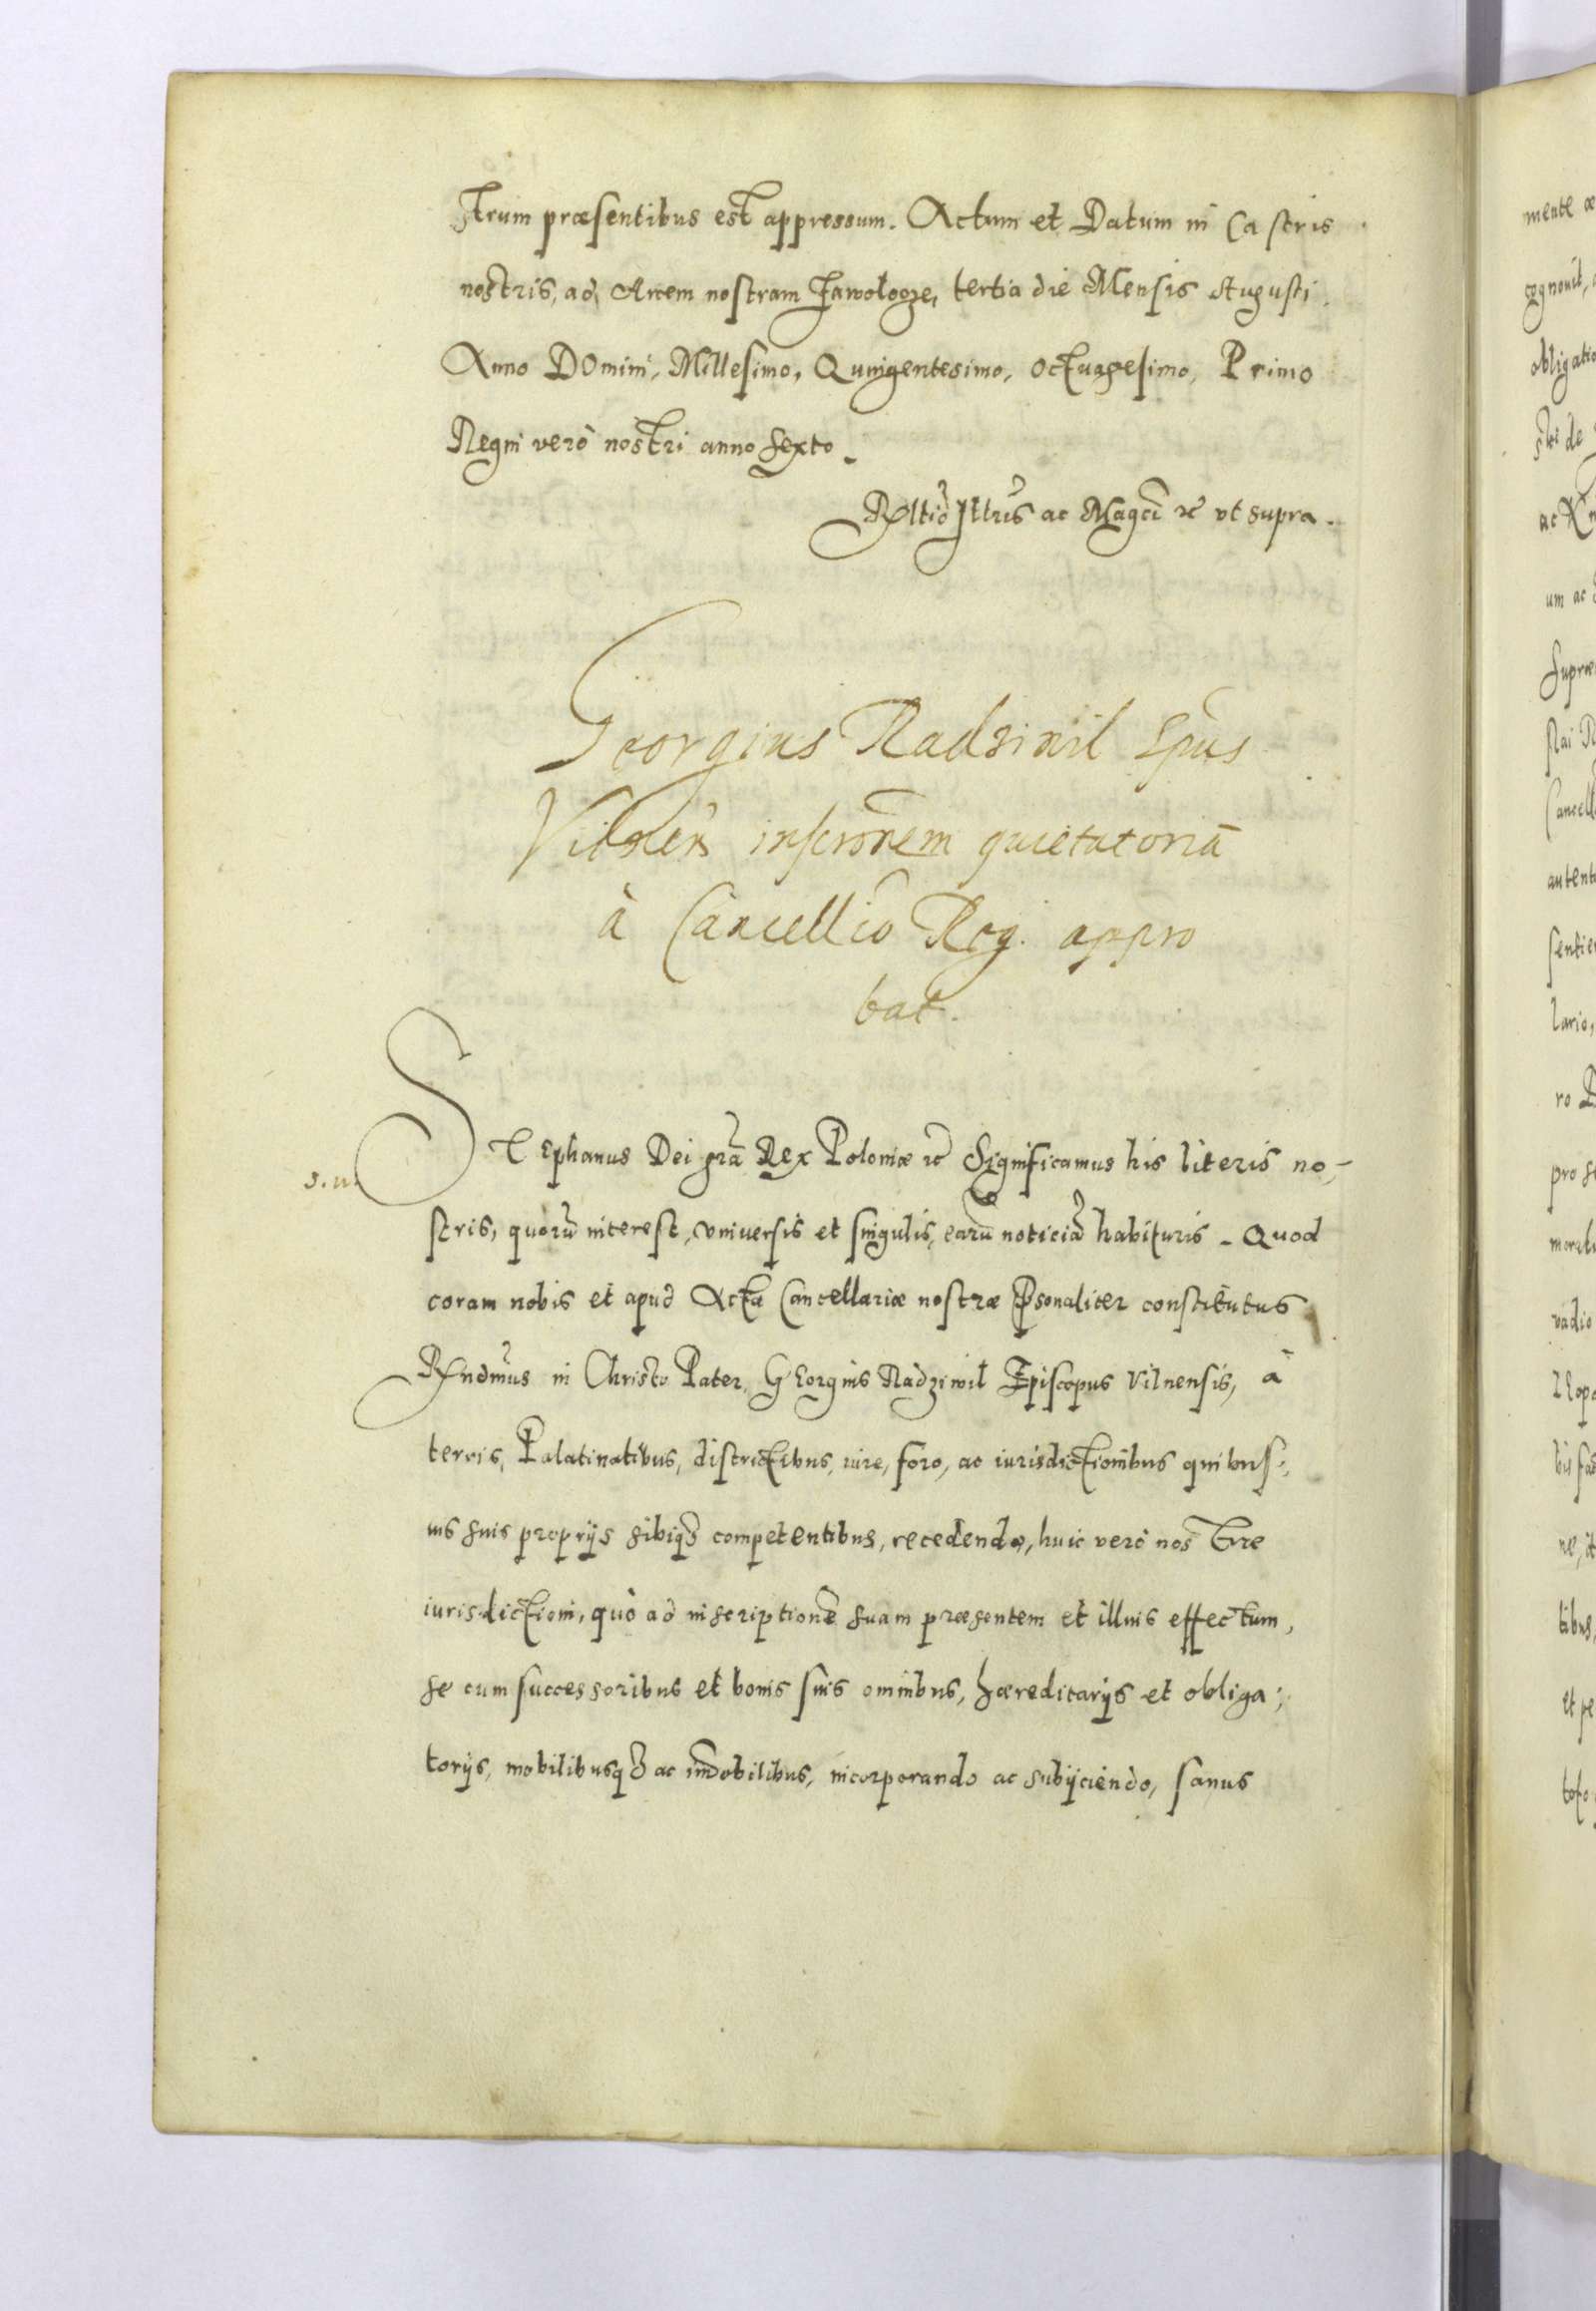 strum præsentibus est appressum. Actum et Datum in Castris
nostris, ad Arcem nostram Zawolocze, tertia die Mensis Augusti.
Anno Domini, Millesimo, Quingentesimo, Octuagesimo, Primo
Regni verò nostri anno sexto.
Rltio Illris ac Magci etc ut supra.
Georgius Radziwil Epus
Vilnen inscronem quietatoriā
à Cancellrio Reg. appro
bat.
Stephanus Dei grā Rex Poloniæ etc Significamus his literis no-
stris, quorū interest, universis et singulis, earū noticiā habituris. Quod
coram nobis et apud Acta Cancellariæ nostræ psonaliter constitutus
Rndmus in Christo Pater, Georgius Radziwil Episcopus Vilnensis, à
terris, Palatinatibus, districtibus, iure, foro, ac iurisdictionibus quibus-
vis suis proprijs sibiq competentibus, recedendo, huic verò nostræ
iurisdictioni, quò ad inscriptionē suam præsentem et illius effectum,
se cum successoribus et bonis suis omnibus, hæreditarijs et obliga:
torijs, mobilibusq ac im̄obilibus, incorporando ac subijciendo, sanus
mente
cognouit,
obligatio
de
ac
um ac
Cancell
autent
lario,
ro
vadio
tibus,
et pe